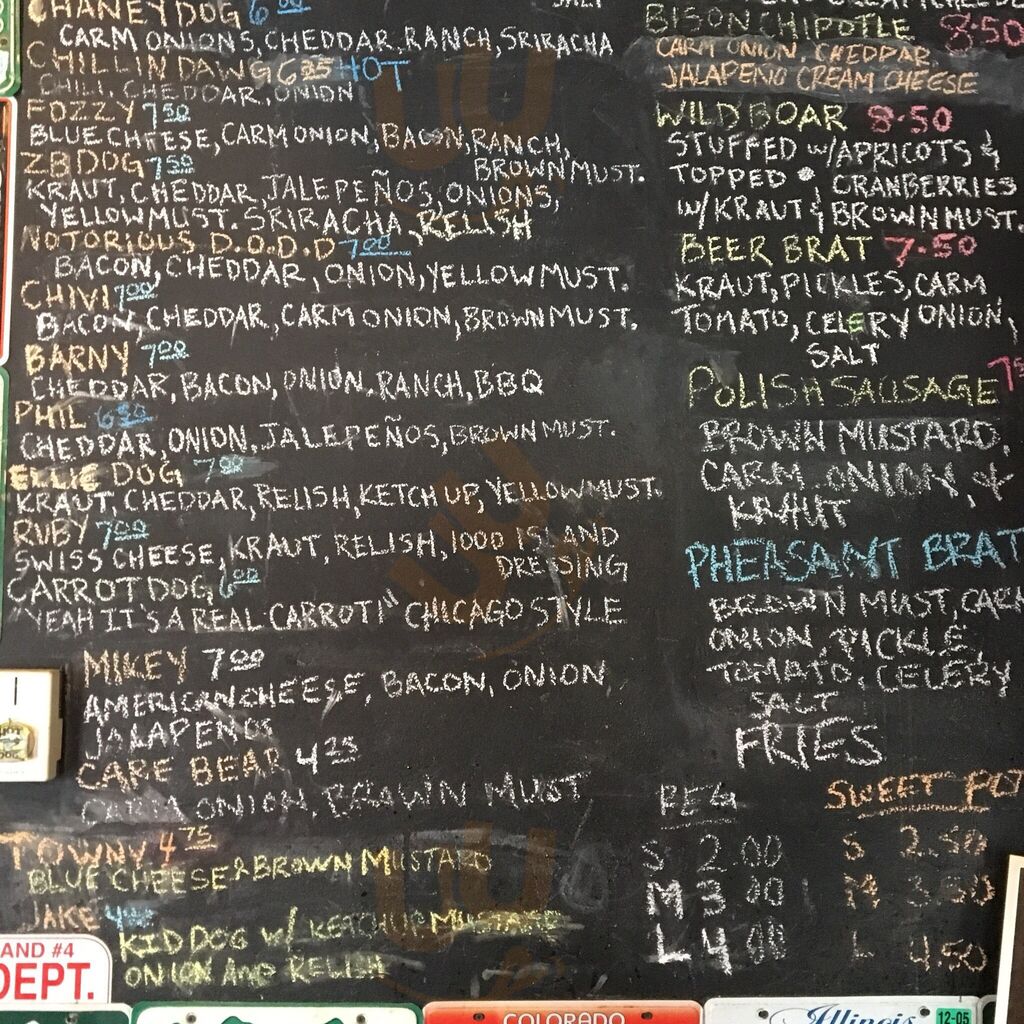 CHANEY DOG 6.00
CARM ONIONS, CHEDDAR, RANCH, SRIRACHA
CHILLIN DAWG 6.25 HOT
CHILI, CHEDDAR, ONION
FOZZY 7.50
BLUE CHEESE, CARM ONION, BACON, RANCH,
BROWN MUST.
ZB DOG 7.50
KRAUT, CHEDDAR, JALEPEÑOS, ONIONS,
YELLOW MUST. SRIRACHA, RELISH
NOTORIOUS D.O.D.D 7.00
BACON, CHEDDAR, ONION, YELLOW MUST.
CHIVI 7.00
BACON, CHEDDAR, CARM ONION, BROWN MUST.
BARNY 7.00
CHEDDAR, BACON, ONION, RANCH, BBQ
PHIL 6.50
CHEDDAR, ONION, JALEPEÑOS, BROWN MUST.
ELLIE DOG 7.00
KRAUT, CHEDDAR, RELISH, KETCHUP, YELLOW MUST.
RUBY 7.00
SWISS CHEESE, KRAUT, RELISH, 1000 ISLAND
DRESSING
CARROT DOG 6.00
"YEAH IT'S A REAL CARROT!" CHICAGO STYLE
MIKEY 7.00
AMERICAN CHEESE, BACON, ONION,
JALAPENOS
CARE BEAR 4.25
ONION, BRAWN MUST
TOWNY 4.75
BLUE CHEESE & BROWN MUSTARD
JAKE
KID DOG W/ KETCHUP MUSTARD
ONION AND RELISH
SALT
BISON CHIPOTLE 8.50
CARM ONION, CHEDDAR,
JALAPENO CREAM CHEESE
WILD BOAR 8.50
STUFFED W/APRICOTS &
TOPPED CRANBERRIES
W/KRAUT & BROWN MUST.
BEER BRAT 7.50
KRAUT, PICKLES, CARM
TOMATO, CELERY ONION,
SALT
POLISH SAUSAGE
BROWN MUSTARD,
CARM ONION, &
KRAUT
PHEASANT BRAT
BROWN MUST, CARM
ONION, PICKLE,
TOMATO, CELERY
SALT
FRIES
REG SWEET POT
S 2.00 S 2.50
M 3.00 M 3.50
L 4.00 L 4.50
AND #4
DEPT.
COLORADO
Illinois 12-05